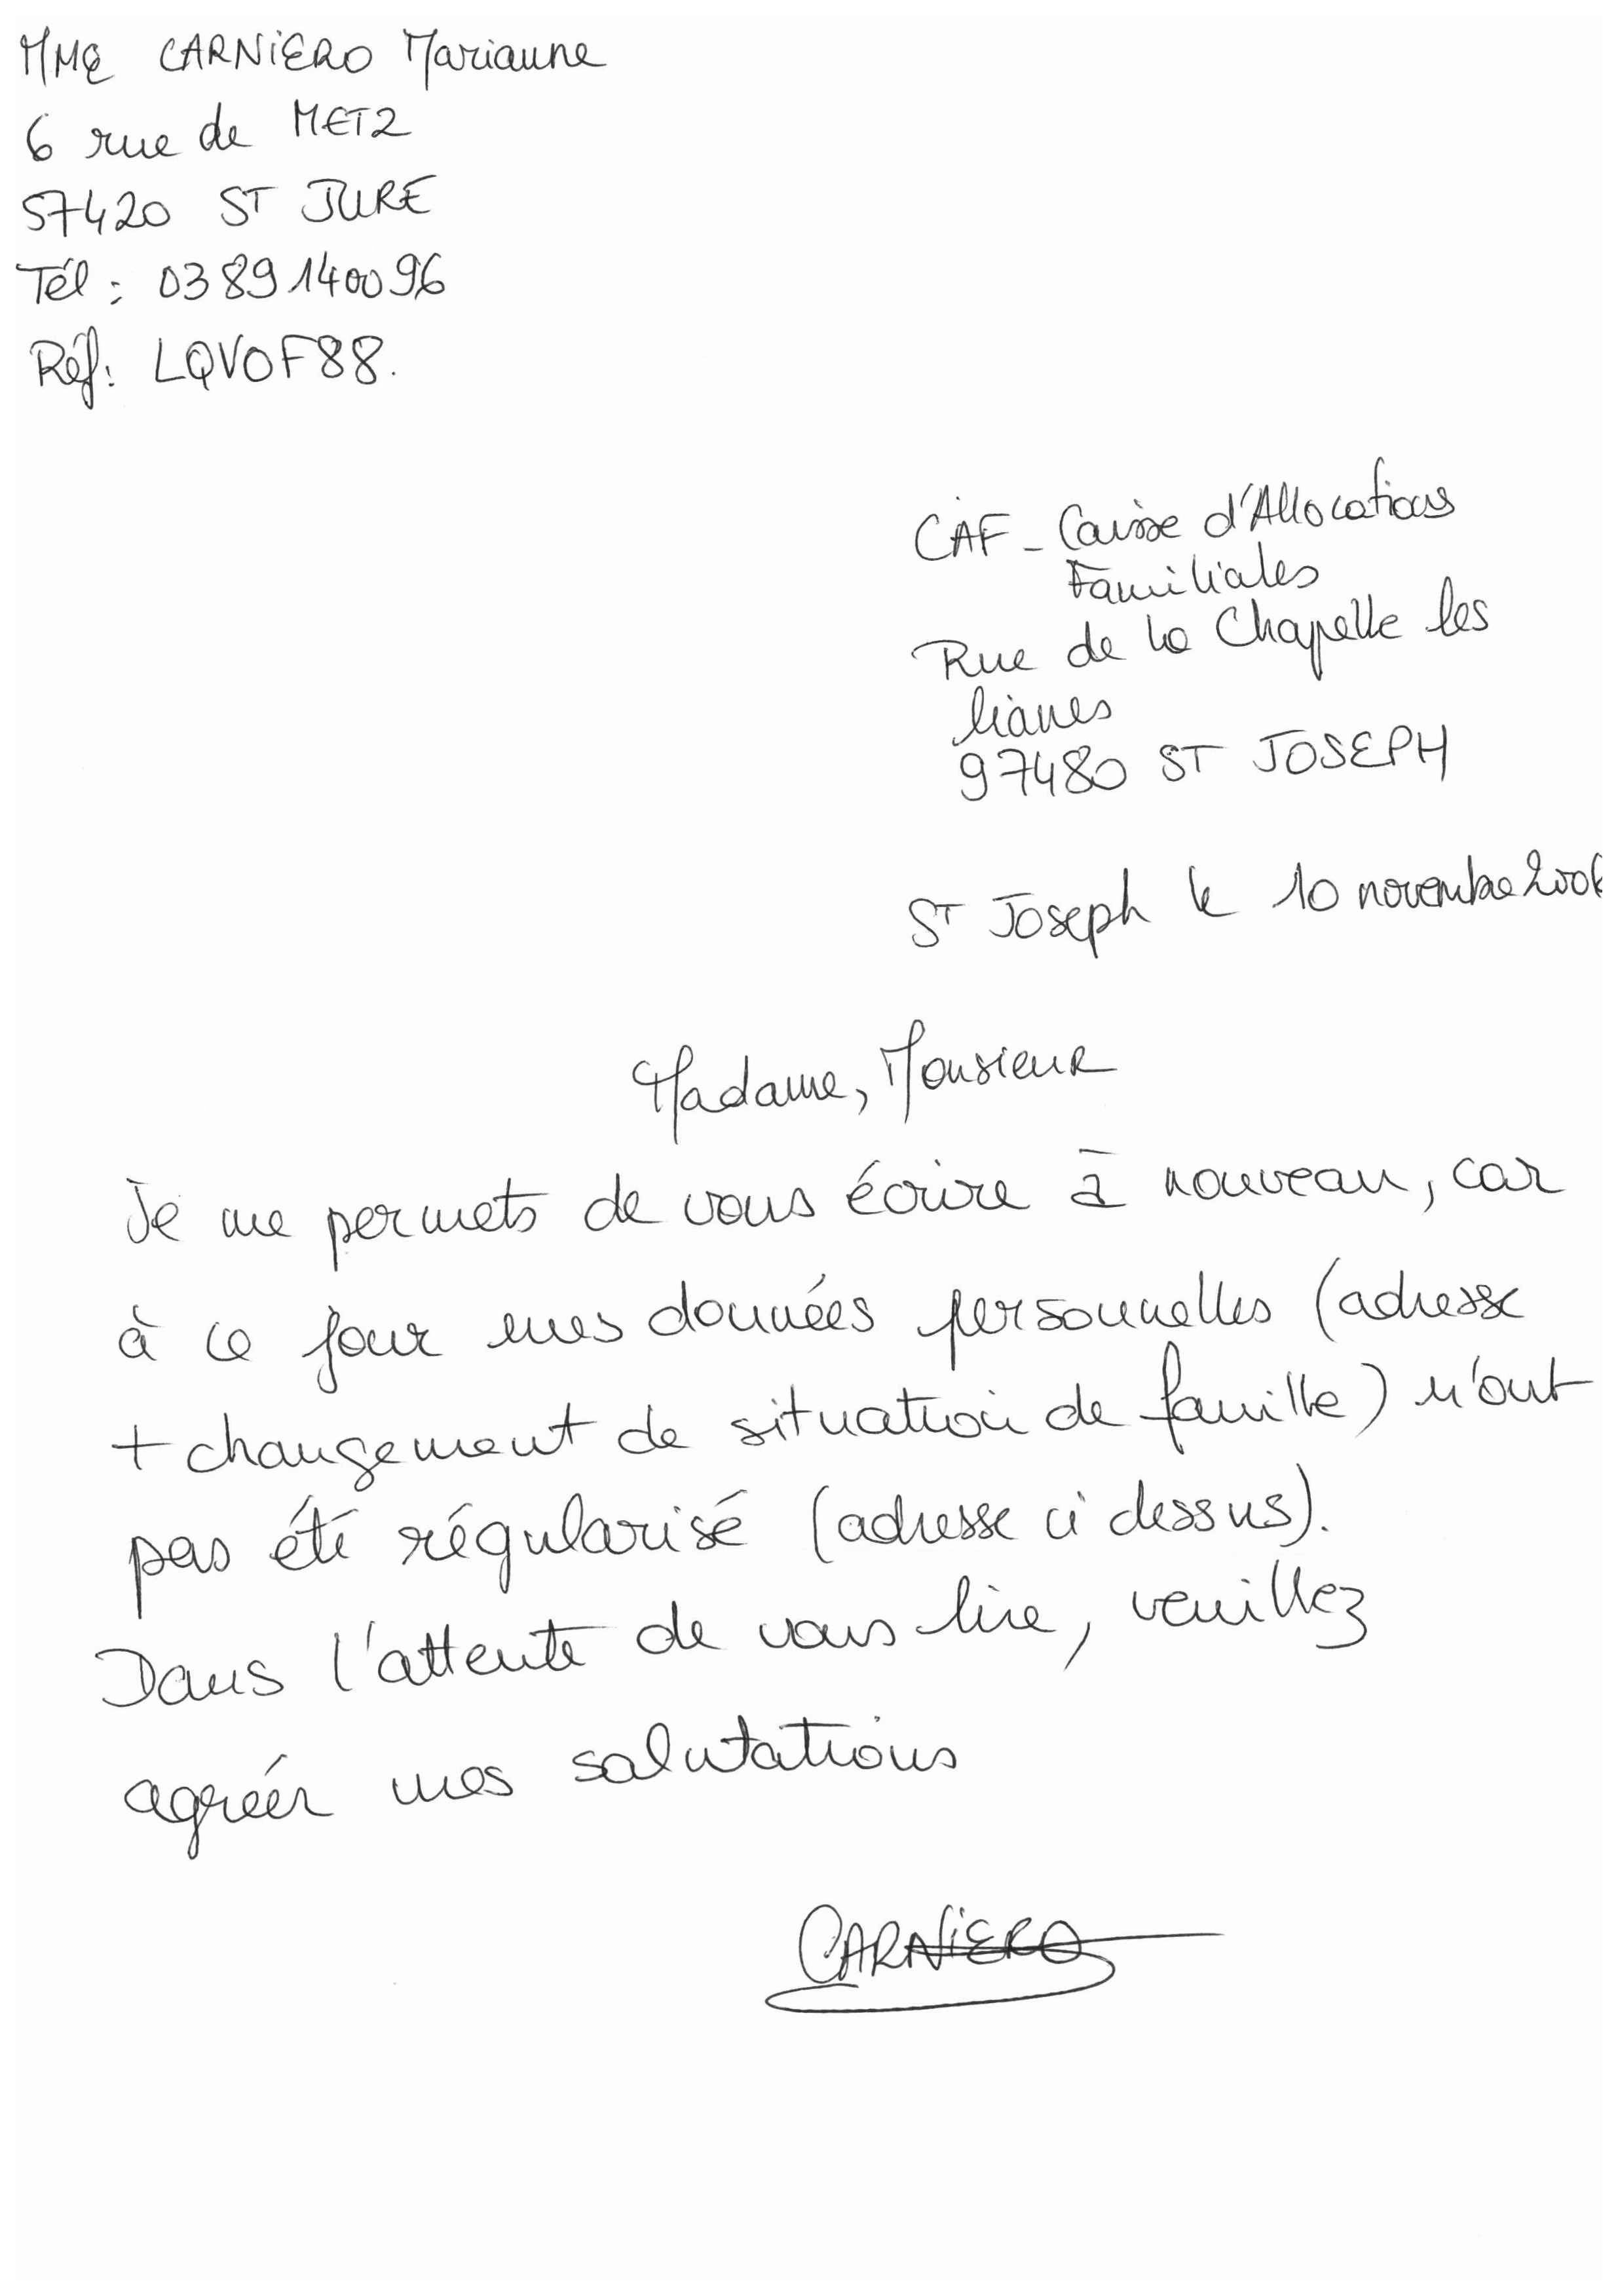 MME CARNIERO Marianne
6 rue de METZ
57420 ST JURE
Tél : 0389140096
Réf: LQVOF88.
CAF - Caisse d'Allocations
Familiales
Rue de la Chapelle les
lianes
97480 ST JOSEPH
ST Joseph le 10 novembre 2006
Madame, Monsieur
Je me permets de vous écrire à nouveau, car
à ce jour mes données personnelles (adresse
+ changement de situation de famille) n'ont
pas été régularisé (adresse ci dessus).
Dans l'attente de vous lire, veuillez
agréér mes salutations
CARNIERO